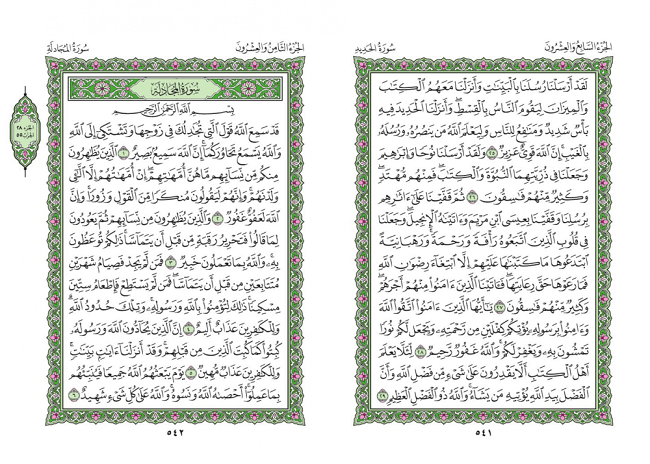 الجزء السابع والعشرون
سورة الحديد
لَقَدْ أَرْسَلْنَا رُسُلَنَا بِٱلْبَيِّنَٰتِ وَأَنزَلْنَا مَعَهُمُ ٱلْكِتَٰبَ
وَٱلْمِيزَانَ لِيَقُومَ ٱلنَّاسُ بِٱلْقِسْطِ ۖ وَأَنزَلْنَا ٱلْحَدِيدَ فِيهِ
بَأْسٌ شَدِيدٌ وَمَنَٰفِعُ لِلنَّاسِ وَلِيَعْلَمَ ٱللَّهُ مَن يَنصُرُهُۥ وَرُسُلَهُۥ
بِٱلْغَيْبِ ۚ إِنَّ ٱللَّهَ قَوِىٌّ عَزِيزٌ ٢٥ وَلَقَدْ أَرْسَلْنَا نُوحًا وَإِبْرَٰهِيمَ
وَجَعَلْنَا فِى ذُرِّيَّتِهِمَا ٱلنُّبُوَّةَ وَٱلْكِتَٰبَ ۖ فَمِنْهُم مُّهْتَدٍ ۖ
وَكَثِيرٌ مِّنْهُمْ فَٰسِقُونَ ٢٦ ثُمَّ قَفَّيْنَا عَلَىٰٓ ءَاثَٰرِهِم
بِرُسُلِنَا وَقَفَّيْنَا بِعِيسَى ٱبْنِ مَرْيَمَ وَءَاتَيْنَٰهُ ٱلْإِنجِيلَ ۖ وَجَعَلْنَا
فِى قُلُوبِ ٱلَّذِينَ ٱتَّبَعُوهُ رَأْفَةً وَرَحْمَةً وَرَهْبَانِيَّةً
ٱبْتَدَعُوهَا مَا كَتَبْنَٰهَا عَلَيْهِمْ إِلَّا ٱبْتِغَآءَ رِضْوَٰنِ ٱللَّهِ
فَمَا رَعَوْهَا حَقَّ رِعَايَتِهَا ۖ فَـَٔاتَيْنَا ٱلَّذِينَ ءَامَنُوا۟ مِنْهُمْ أَجْرَهُمْ ۖ
وَكَثِيرٌ مِّنْهُمْ فَٰسِقُونَ ٢٧ يَٰٓأَيُّهَا ٱلَّذِينَ ءَامَنُوا۟ ٱتَّقُوا۟ ٱللَّهَ
وَءَامِنُوا۟ بِرَسُولِهِۦ يُؤْتِكُمْ كِفْلَيْنِ مِن رَّحْمَتِهِۦ وَيَجْعَل لَّكُمْ نُورًا
تَمْشُونَ بِهِۦ وَيَغْفِرْ لَكُمْ ۚ وَٱللَّهُ غَفُورٌ رَّحِيمٌ ٢٨ لِّئَلَّا يَعْلَمَ
أَهْلُ ٱلْكِتَٰبِ أَلَّا يَقْدِرُونَ عَلَىٰ شَىْءٍ مِّن فَضْلِ ٱللَّهِ ۙ وَأَنَّ
ٱلْفَضْلَ بِيَدِ ٱللَّهِ يُؤْتِيهِ مَن يَشَآءُ ۚ وَٱللَّهُ ذُو ٱلْفَضْلِ ٱلْعَظِيمِ ٢٩
٥٤١
الجزء الثامن والعشرون
سورة المجادلة
سورة المجادلة
بِسْمِ ٱللَّهِ ٱلرَّحْمَٰنِ ٱلرَّحِيمِ
قَدْ سَمِعَ ٱللَّهُ قَوْلَ ٱلَّتِى تُجَٰدِلُكَ فِى زَوْجِهَا وَتَشْتَكِىٓ إِلَى ٱللَّهِ
وَٱللَّهُ يَسْمَعُ تَحَاوُرَكُمَآ ۚ إِنَّ ٱللَّهَ سَمِيعٌۢ بَصِيرٌ ١ ٱلَّذِينَ يُظَٰهِرُونَ
مِنكُم مِّن نِّسَآئِهِم مَّا هُنَّ أُمَّهَٰتِهِمْ ۖ إِنْ أُمَّهَٰتُهُمْ إِلَّا ٱلَّٰٓـِٔى
وَلَدْنَهُمْ ۚ وَإِنَّهُمْ لَيَقُولُونَ مُنكَرًا مِّنَ ٱلْقَوْلِ وَزُورًا ۚ وَإِنَّ
ٱللَّهَ لَعَفُوٌّ غَفُورٌ ٢ وَٱلَّذِينَ يُظَٰهِرُونَ مِن نِّسَآئِهِمْ ثُمَّ يَعُودُونَ
لِمَا قَالُوا۟ فَتَحْرِيرُ رَقَبَةٍ مِّن قَبْلِ أَن يَتَمَآسَّا ۚ ذَٰلِكُمْ تُوعَظُونَ
بِهِۦ ۚ وَٱللَّهُ بِمَا تَعْمَلُونَ خَبِيرٌ ٣ فَمَن لَّمْ يَجِدْ فَصِيَامُ شَهْرَيْنِ
مُتَتَابِعَيْنِ مِن قَبْلِ أَن يَتَمَآسَّا ۖ فَمَن لَّمْ يَسْتَطِعْ فَإِطْعَامُ سِتِّينَ
مِسْكِينًا ۚ ذَٰلِكَ لِتُؤْمِنُوا۟ بِٱللَّهِ وَرَسُولِهِۦ ۚ وَتِلْكَ حُدُودُ ٱللَّهِ ۗ
وَلِلْكَٰفِرِينَ عَذَابٌ أَلِيمٌ ٤ إِنَّ ٱلَّذِينَ يُحَآدُّونَ ٱللَّهَ وَرَسُولَهُۥ
كُبِتُوا۟ كَمَا كُبِتَ ٱلَّذِينَ مِن قَبْلِهِمْ ۚ وَقَدْ أَنزَلْنَآ ءَايَٰتٍۭ بَيِّنَٰتٍ ۚ
وَلِلْكَٰفِرِينَ عَذَابٌ مُّهِينٌ ٥ يَوْمَ يَبْعَثُهُمُ ٱللَّهُ جَمِيعًا فَيُنَبِّئُهُم
بِمَا عَمِلُوٓا۟ ۚ أَحْصَىٰهُ ٱللَّهُ وَنَسُوهُ ۚ وَٱللَّهُ عَلَىٰ كُلِّ شَىْءٍ شَهِيدٌ ٦
الجزء ٢٨
الحزب ٥٥
٥٤٢